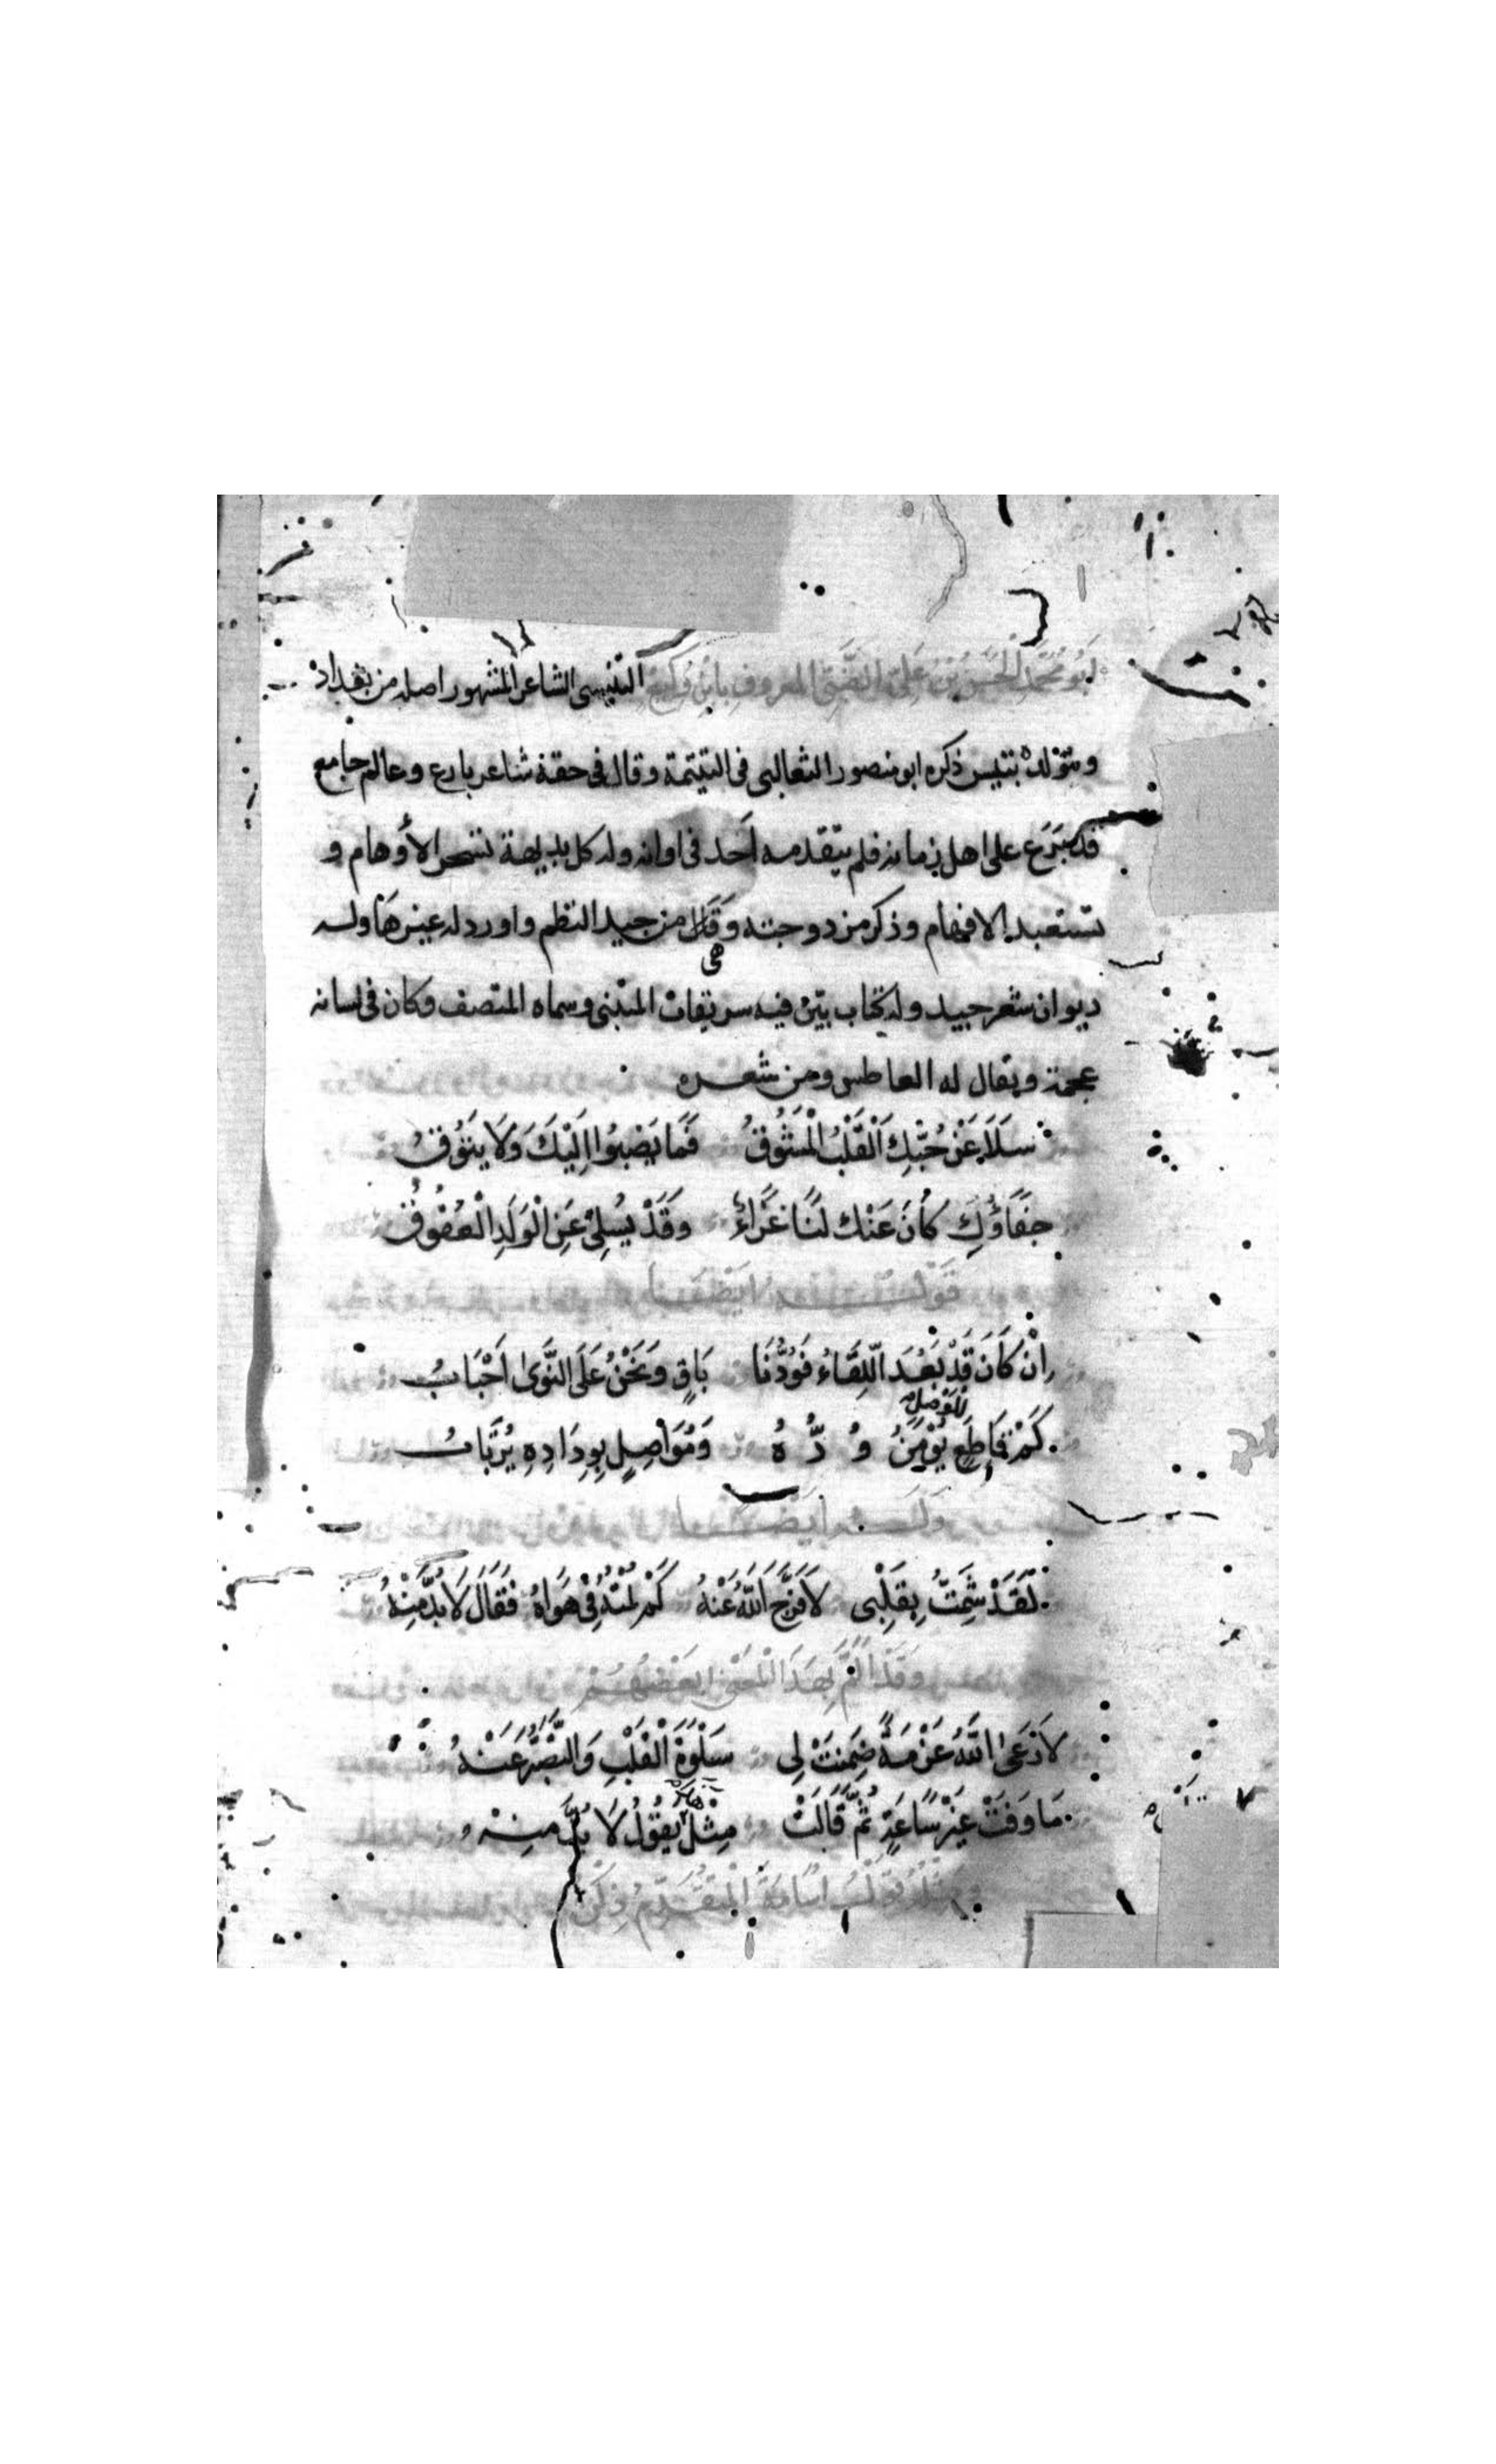 ابو محمد الحسن بن علي الضبي المعروف بابن وكيع التنيسى الشاعر المشهور اصله من بغداد
ومولده بتنيس ذكره ابو منصور الثعالبى فى اليتيمة وقال فى حقه شاعر بارع وعالم جامع
قد برع على اهل زمانه فلم يتقدمه احد فى اوانه وله كل بديهة تسحر الأوهام و
تستعبد الافهام وذكر مزدوجته وهى من جيد النظم واورد له غيرها وله
ديوان شعر جيد وله كتاب بيّن فيه سرقات المتنبى وسماه المنصف وكان فى لسانه
عجمة ويقال له العاطس ومن شعره
سَلَا عَنْ حُبِّكِ الْقَلْبُ الْمَشُوقُ فَمَا يَصْبُوا اِلَيْكَ وَلَا يَتُوقُ
جَفَاؤُكِ كَانَ عَنْك لَنَا عَزَاءً وَقَدْ يُسْلِىْ عَنِ الْوَلَدِ الْعُقُوقُ
قوله ايضا
اِنْ كَانَ قَدْ بَعُدَ اللِّقَاءُ فَوُدُّنَا بَاقٍ وَنَحْنُ عَلَى النَّوَى اَحْبَابُ
كَمْ قَاطِعٍ للوصل يُؤْمَنُ وُدُّهُ وَمُوَاصِلٍ بِوِدَادِهِ يُرْتَابُ
وله ايضا
لَقَدْ شَمِتُّ بِقَلْبِى لَا فَرَّجَ اللّٰهُ عَنْهُ كَمْ لُمْتُهُ فِىْ هَوَاهُ فَقَالَ لَا بُدَّ مِنْهُ
وَقَدْ اَلَمَّ بِهَذَا الْمَعْنَى بَعْضُهُمْ
لَا رَعَى اللّٰهُ عَزْمَةً ضَمِنَتْ لِى سَلْوَةَ الْقَلْبِ وَالتَّصَبُّرَ عَنْهُ
مَا وَفَتْ غَيْرَ سَاعَةٍ ثُمَّ قَالَتْ مِثْلَ يَقُوْلُ لَا بُدَّ مِنْهُ